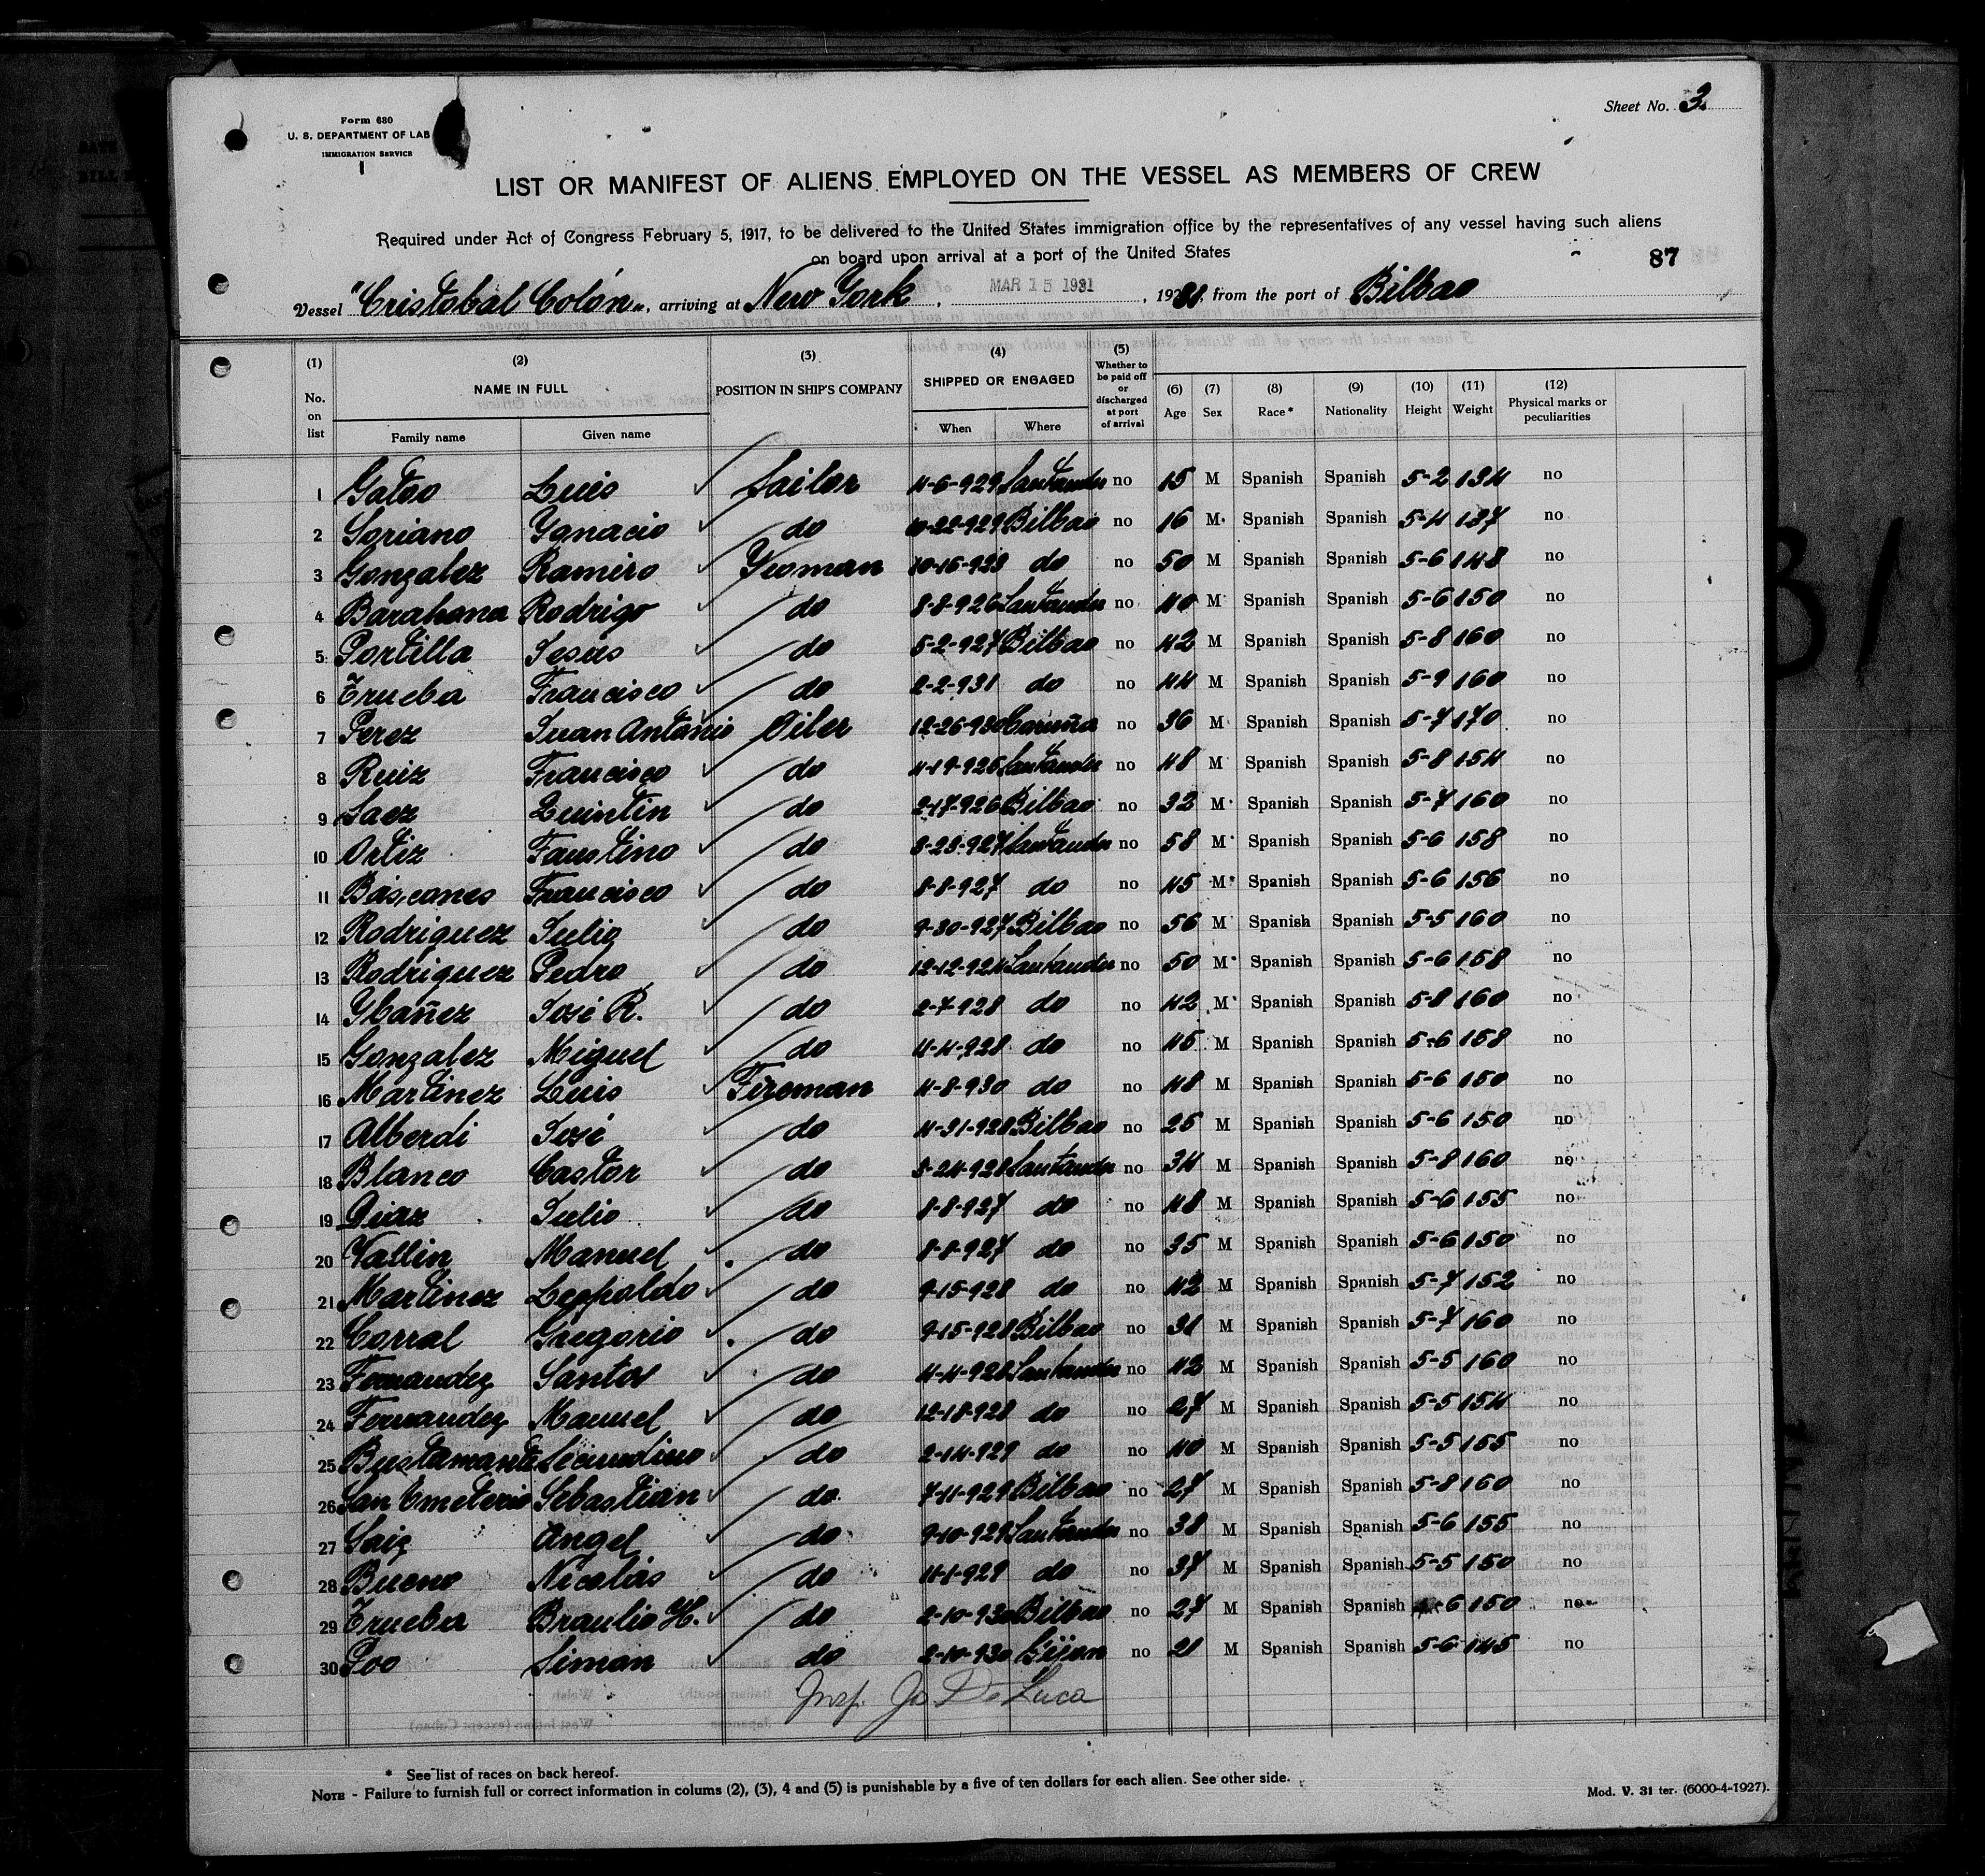 Sheet No. 3
Form 680
U. S. DEPARTMENT OF LAB
IMMIGRATION SERVICE
LIST OR MANIFEST OF ALIENS EMPLOYED ON THE VESSEL AS MEMBERS OF CREW
Required under Act of Congress February 5, 1917, to be delivered to the United States immigration office by the representatives of any vessel having such aliens
on board upon arrival at a port of the United States
87
Vessel "Cristobal Colón", arriving at New York, MAR 15 1931, 1931, from the port of Bilbao
(1) No. on list (2) NAME IN FULL Family name Given name (3) POSITION IN SHIP'S COMPANY (4) SHIPPED OR ENGAGED When Where (5) Whether to be paid off or discharged at port of arrival (6) Age (7) Sex (8) Race* (9) Nationality (10) Height (11) Weight (12) Physical marks or peculiarities
1 Gatoo Luis Sailor 4-6-929 Santander no 15 M Spanish Spanish 5-2 134 no
2 Soriano Ygnacio do 10-22-929 Bilbao no 16 M Spanish Spanish 5-4 137 no
3 Gonzalez Ramiro Yeoman 10-16-928 do no 50 M Spanish Spanish 5-6 148 no
4 Barahona Rodrigo do 8-8-926 Santander no 40 M Spanish Spanish 5-6 150 no
5 Portilla Jesus do 5-2-927 Bilbao no 42 M Spanish Spanish 5-8 160 no
6 Trueba Francisco do 2-2-931 do no 44 M Spanish Spanish 5-9 160 no
7 Perez Juan Antonio Oiler 12-26-930 Coruña no 36 M Spanish Spanish 5-7 170 no
8 Ruiz Francisco do 4-19-926 Santander no 48 M Spanish Spanish 5-8 154 no
9 Saez Quintin do 2-17-926 Bilbao no 32 M Spanish Spanish 5-7 160 no
10 Ortiz Faustino do 8-28-927 Santander no 58 M Spanish Spanish 5-6 158 no
11 Báscones Francisco do 8-8-927 do no 45 M Spanish Spanish 5-6 156 no
12 Rodriguez Julio do 9-30-927 Bilbao no 56 M Spanish Spanish 5-5 160 no
13 Rodriguez Pedro do 12-12-924 Santander no 50 M Spanish Spanish 5-6 158 no
14 Ybañez José R. do 2-7-928 do no 42 M Spanish Spanish 5-8 160 no
15 Gonzalez Miguel do 4-4-928 do no 45 M Spanish Spanish 5-6 158 no
16 Martinez Luis Fireman 4-8-930 do no 48 M Spanish Spanish 5-6 150 no
17 Alberdi José do 4-31-928 Bilbao no 25 M Spanish Spanish 5-6 150 no
18 Blanco Castor do 5-24-928 Santander no 34 M Spanish Spanish 5-8 160 no
19 Diaz Julio do 8-8-927 do no 48 M Spanish Spanish 5-6 155 no
20 Vallin Manuel do 8-8-927 do no 35 M Spanish Spanish 5-6 150 no
21 Martinez Leopoldo do 9-15-928 do no 42 M Spanish Spanish 5-7 152 no
22 Corral Gregorio do 9-15-928 Bilbao no 31 M Spanish Spanish 5-7 160 no
23 Fernandez Santos do 4-4-928 Santander no 42 M Spanish Spanish 5-5 160 no
24 Fernandez Manuel do 12-18-928 do no 27 M Spanish Spanish 5-5 154 no
25 Bustamante Secundino do 2-14-929 do no 40 M Spanish Spanish 5-5 155 no
26 San Emeterio Sebastian do 7-11-929 Bilbao no 27 M Spanish Spanish 5-8 160 no
27 Saiz Angel do 9-10-929 Santander no 38 M Spanish Spanish 5-6 155 no
28 Bueno Nicolás do 11-1-929 do no 37 M Spanish Spanish 5-5 150 no
29 Trueba Braulio H. do 2-10-930 Bilbao no 27 M Spanish Spanish 6 150 no
30 Poo Simon do 2-10-930 Gijon no 21 M Spanish Spanish 5-6 145 no
Insp. Jo De Luca
* See list of races on back hereof.
NOTE - Failure to furnish full or correct information in colums (2), (3), 4 and (5) is punishable by a five of ten dollars for each alien. See other side.
Mod. V. 31 ter. (6000-4-1927).